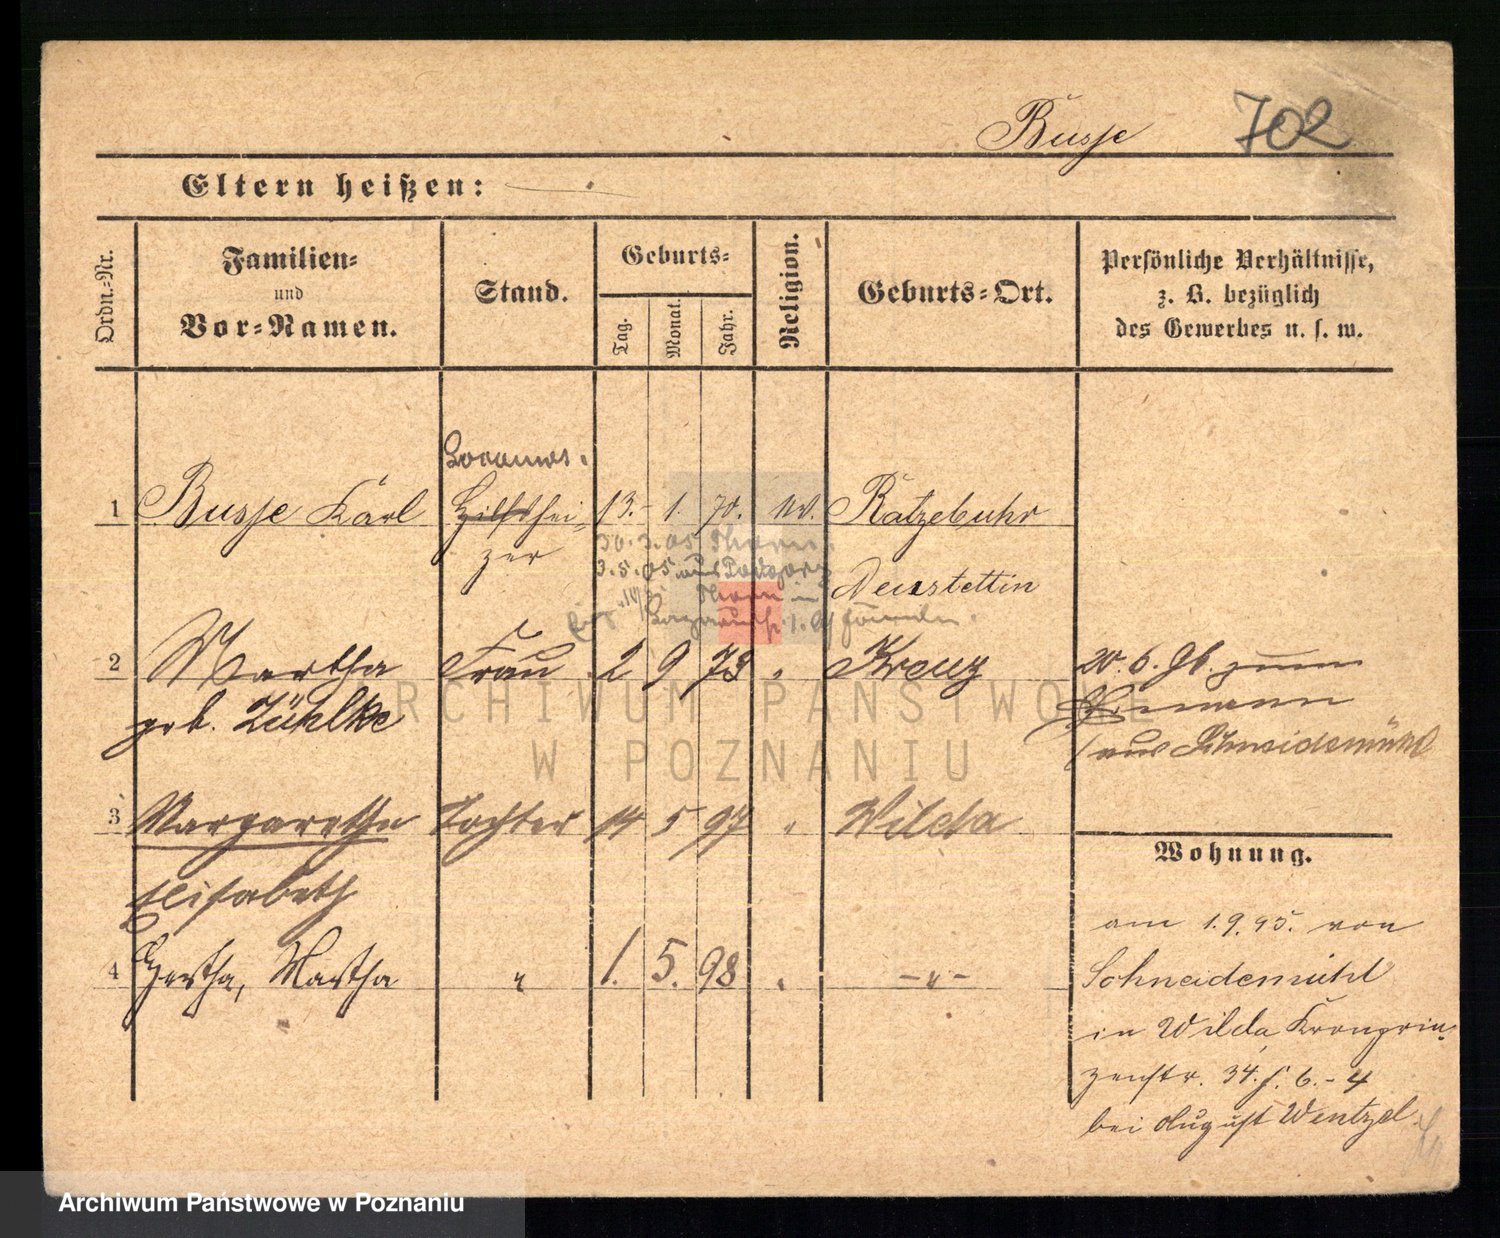 Busse 702
Eltern heißen:
Ordn.-Nr.
Familien-
und
Vor-Namen.
Stand.
Geburts-
Tag.
Monat.
Jahr.
Religion.
Geburts-Ort.
Persönliche Verhältnisse,
z. B. bezüglich
des Gewerbes u. s. w.
1 Busse Karl Hilfshei- 13. 1. 70. Ratzebuhr
zer
Neustettin
30.3.05 Thorn
3.5.05 aus Podgorz
Thorn in
2 Martha Frau 2 9 73 " Kreuz
geb. Zühlke
20.6.96 zum
Ehemann
aus Schneidemühl
3 Margarethe Tochter 14 5 97 " Wilda
Elisabeth
4 Hertha, Martha " 1. 5. 98 " -"-
Wohnung.
am 1.9.95. von
Schneidemühl
in Wilda, Kronprin-
zenstr. 34. 6.-4
bei August Wentzel.
ARCHIWUM PAŃSTWOWE
W POZNANIU
Archiwum Państwowe w Poznaniu